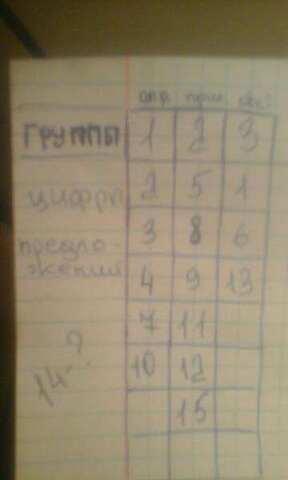 опр. прил. обс?
ГРУППЫ 1 2 3
цифры 2 5 1
предло- 3 8 6
жений 4 9 13
7 11
14-? 10 12
15